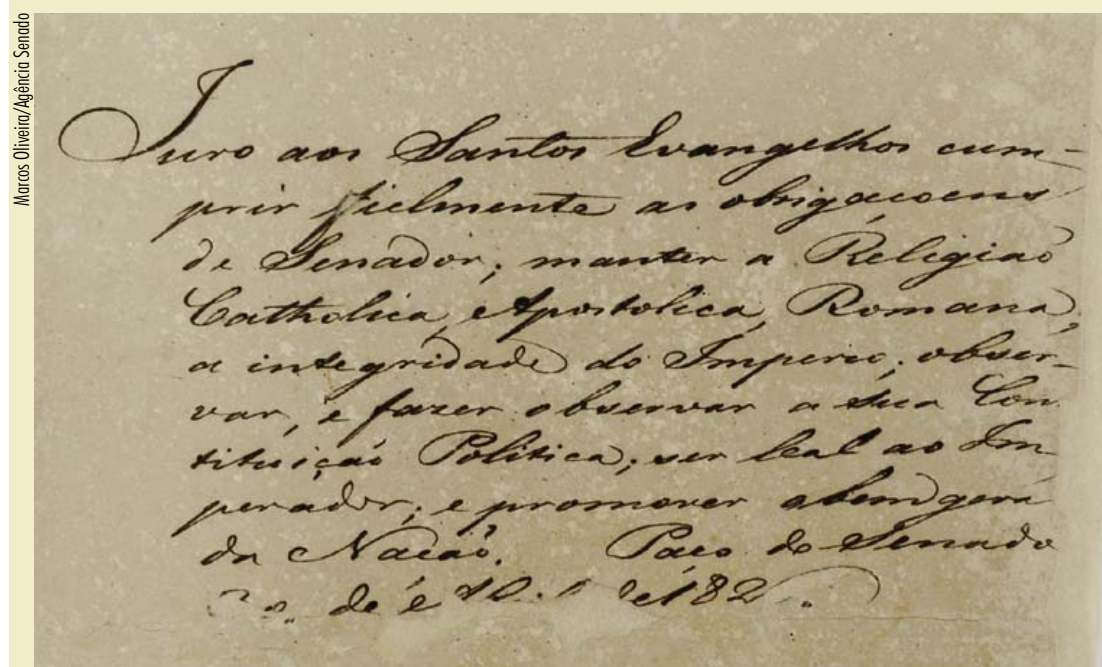 Marcos Oliveira/Agência Senado
Juro aos Santos Evangelhos cum-
prir fielmente as obrigaçoens
de Senador; manter a Religiaõ
Catholica, Apostolica, Romana,
a integridade do Imperio; obser-
var, e fazer observar a sua Con
tituiçaõ Politica; ser leal ao Im-
perador; e promover o bem gera
da Naçaõ. Paço do Senado
de de 182